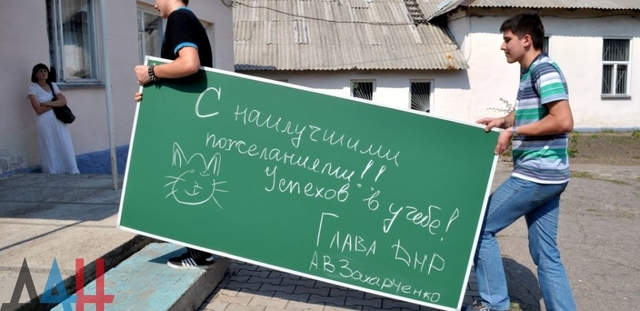 С наилучшими
пожеланиями!!!
Успехов в учебе!
Глава ДНР
А В Захарченко
ДАН